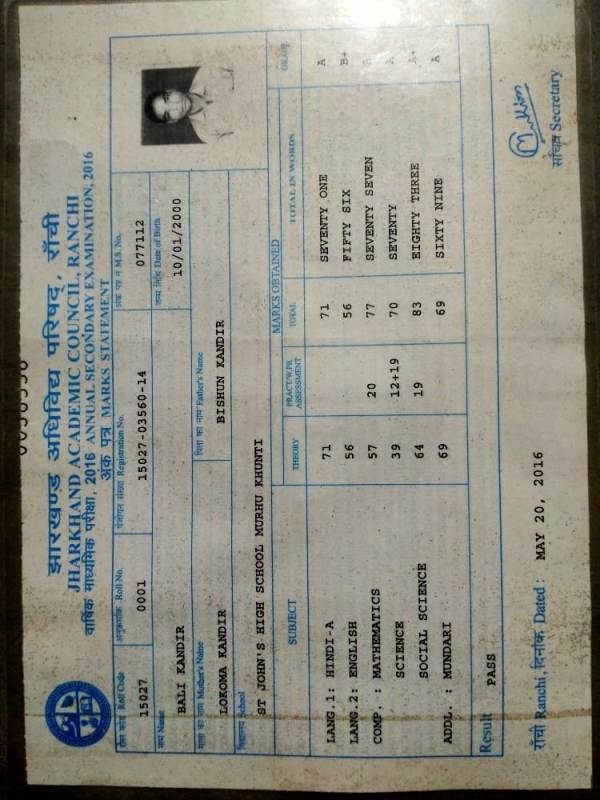 झारखण्ड अधिविद्य परिषद्, राँची
JHARKHAND ACADEMIC COUNCIL, RANCHI
वार्षिक माध्यमिक परीक्षा, 2016 ANNUAL SECONDARY EXAMINATION, 2016
अंक पत्र MARKS STATEMENT
रोल कोड Roll Code अनुक्रमांक Roll No. पंजीयन संख्या Registration No. अंक पत्र सं M.S. No.
15027 0001 15027-03560-14 077112
नाम Name जन्म तिथि Date of Birth
BALI KANDIR 10/01/2000
माता का नाम Mother's Name पिता का नाम Father's Name
LOKOMA KANDIR BISHUN KANDIR
विद्यालय School
ST JOHN'S HIGH SCHOOL MURHU KHUNTI
SUBJECT MARKS OBTAINED
THEORY PRACT/W.PR ASSESSMENT TOTAL TOTAL IN WORDS GRADE
LANG.1: HINDI-A 71 71 SEVENTY ONE A
LANG.2: ENGLISH 56 56 FIFTY SIX B+
COMP. : MATHEMATICS 57 20 77 SEVENTY SEVEN A
SCIENCE 39 12+19 70 SEVENTY A
SOCIAL SCIENCE 64 19 83 EIGHTY THREE A+
ADDL. : MUNDARI 69 69 SIXTY NINE A
Result PASS
राँची Ranchi, दिनांक Dated: MAY 20, 2016
सचिव Secretary